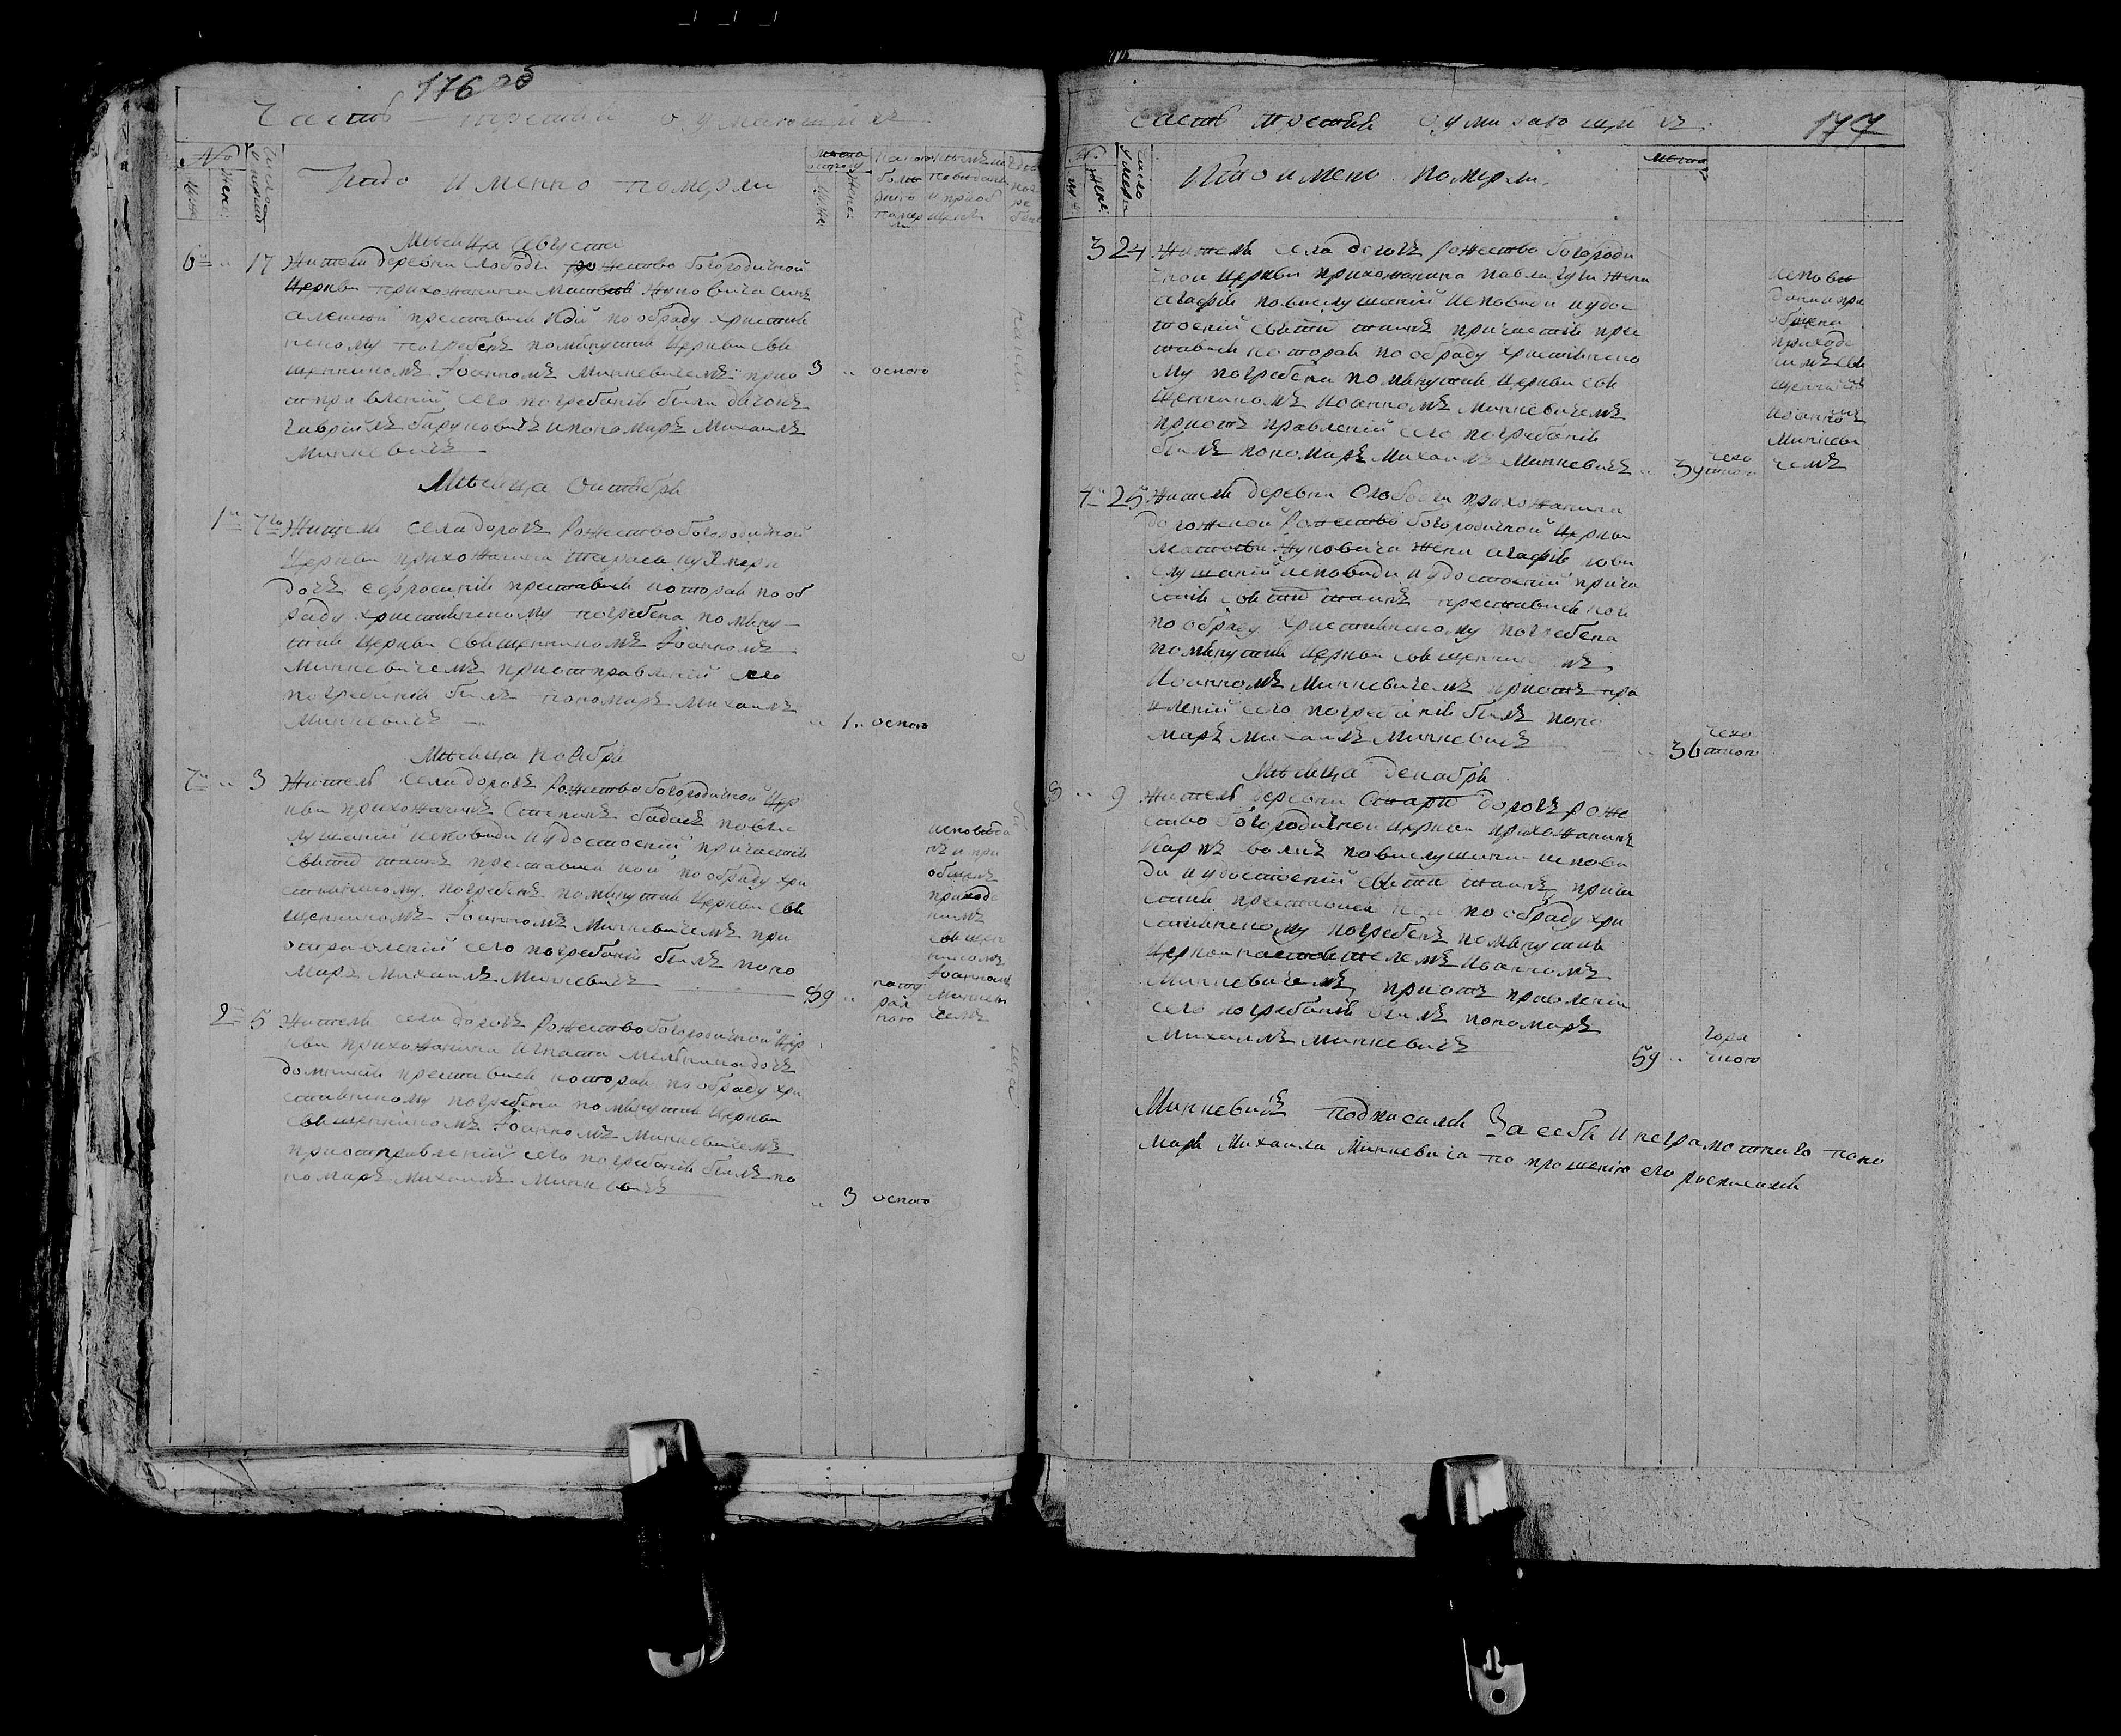 176 об
Часть третяя о умирающихъ
№
Муж.
Жен.
Число
Кто именно померли
Лета
Муж.
Жен.
Месяца Августа
6 17 Жителя деревни Слободы рожество богородичной
Церкви прихожанина Матвея Жуковича сынъ
Алексей преставися кой по обряду християн
скому погребенъ помянутия Церкви свя
щенникомъ Иоанномъ Минкевичемъ при 3 оспою
отправлений сего погребения были дячокъ
Гаврийлъ и пономаръ Михаилъ
Минкевичъ
Месяца Октября
1 7го Жителя села дорогъ Рожество богородичной
Церкви прихожанина Тараса
дочъ Ефросиния преставися которая по об
ряду християнскому погребена помяну
тия Церкви священникомъ Иоанномъ
Минкевичемъ приотправлений сего
погребения былъ пономаръ Михаилъ
Минкевичъ 1 оспою
Месяца Ноября
7 3 Житель села дорогъ Рожество богородичной Цер
кви прихожанинъ Степанъ повы
слушаний исповиди иудостоений причастия
святы таинъ преставися кой по обряду хри
стиянскому погребенъ помянутия Церкви свя
щенникомъ Иоанномъ Минкевичемъ при
отправлений сего погребения былъ поно
маръ Михаилъ Минкевичъ 59
исповида
нъ и при
общенъ
приходс
кимъ
священ
никомъ
Иоанномъ
Минкеви
чемъ
2 5 Житель села дорогъ Рожество богородичной Цер
кви прихожанина Игната Мельника дочъ
преставися которая по обряду хри
стиянскому погребена помянутия Церкви
священникомъ Иоанномъ Минкевичемъ
приотправлений сего погребения былъ по
номаръ Михаилъ Минкевичъ 3 оспою
177
Часть третяя о умирающихъ
№
Жен.
Число
Кто имено померли
Лета
3 24 Житель села дорогъ рожество богороди
чной Церкви прихожанина Павла жена
Агафия повыслушаний исповиди иудос
тоений святы таинъ причастия прес
тавися которая по обряду християнско
му погребена помянутия Церкви свя
щенникомъ Иоанномъ Минкевичемъ
приотъ правлений сего погребения
былъ пономаръ Михаилъ Минкевичъ 39 чехоткою
исповы
дана и при
общена
приходс
кимъ свя
щенником
Иоанномъ
Минкеви
чемъ
4 25 Житель деревни Слободы прихожанина
дорожской Рожество богородичной Церкви
Матвея Жуковича жена Агафия повы
слушаний исповиди иудостоений прича
стия святы таинъ преставися коя
по обряду християнскому погребена
помянутия Церкви священникомъ
Иоанномъ Минкевичемъ приотъ пра
влений сего погребения былъ поно
маръ Михаилъ Минкевичъ 36 чехоткою
Месяца Декабря
8 9 Житель деревни Стары дорогъ роже
ство богородичной Церкви прихожанинъ
Карпъ повыслушании испови
ди иудостоений святы таинъ прича
стия преставися кой по обряду хри
стиянскому погребенъ помянутия
Церкви настоятелемъ Иоанномъ
Минкевичемъ приотъ правлении
сего погребения былъ пономаръ
Михаилъ Минкевичъ 59 горячкою
Минкевичъ подписался За себя и неграмотнаго поно
маря Михаила Минкевича по прошению его росписался